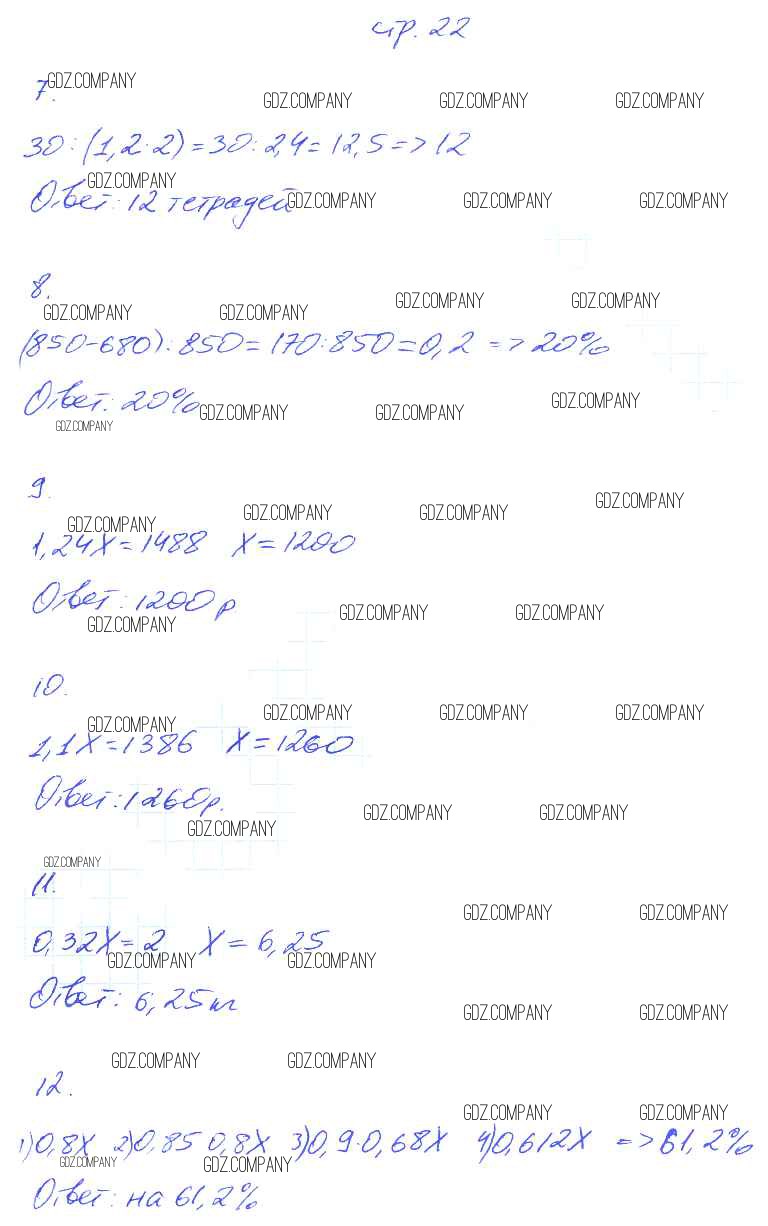 стр. 22
GDZ.COMPANY
7.
GDZ.COMPANY GDZ.COMPANY GDZ.COMPANY
30 : (1,2·2) = 30 : 2,4 = 12,5 => 12
GDZ.COMPANY
Ответ: 12 тетрадей
GDZ.COMPANY GDZ.COMPANY GDZ.COMPANY
8.
GDZ.COMPANY GDZ.COMPANY GDZ.COMPANY GDZ.COMPANY
(850-680) : 850 = 170 : 850 = 0,2 => 20%
Ответ: 20%
GDZ.COMPANY GDZ.COMPANY GDZ.COMPANY
GDZ.COMPANY
9.
GDZ.COMPANY GDZ.COMPANY GDZ.COMPANY GDZ.COMPANY
1,24X = 1488 X = 1200
Ответ: 1200 р
GDZ.COMPANY GDZ.COMPANY GDZ.COMPANY
10.
GDZ.COMPANY GDZ.COMPANY GDZ.COMPANY GDZ.COMPANY
1,1X = 1386 X = 1260
Ответ: 1260 р.
GDZ.COMPANY GDZ.COMPANY GDZ.COMPANY
GDZ.COMPANY
11.
GDZ.COMPANY GDZ.COMPANY
0,32X = 2 X = 6,25
GDZ.COMPANY GDZ.COMPANY
Ответ: 6,25 кг
GDZ.COMPANY GDZ.COMPANY
GDZ.COMPANY GDZ.COMPANY
12.
GDZ.COMPANY GDZ.COMPANY
1) 0,8X 2) 0,85 0,8X 3) 0,9·0,68X 4) 0,612X => 61,2%
GDZ.COMPANY GDZ.COMPANY
Ответ: на 61,2%